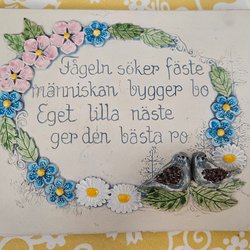 Fågeln söker fäste
människan bygger bo
Eget lilla näste
ger den bästa ro